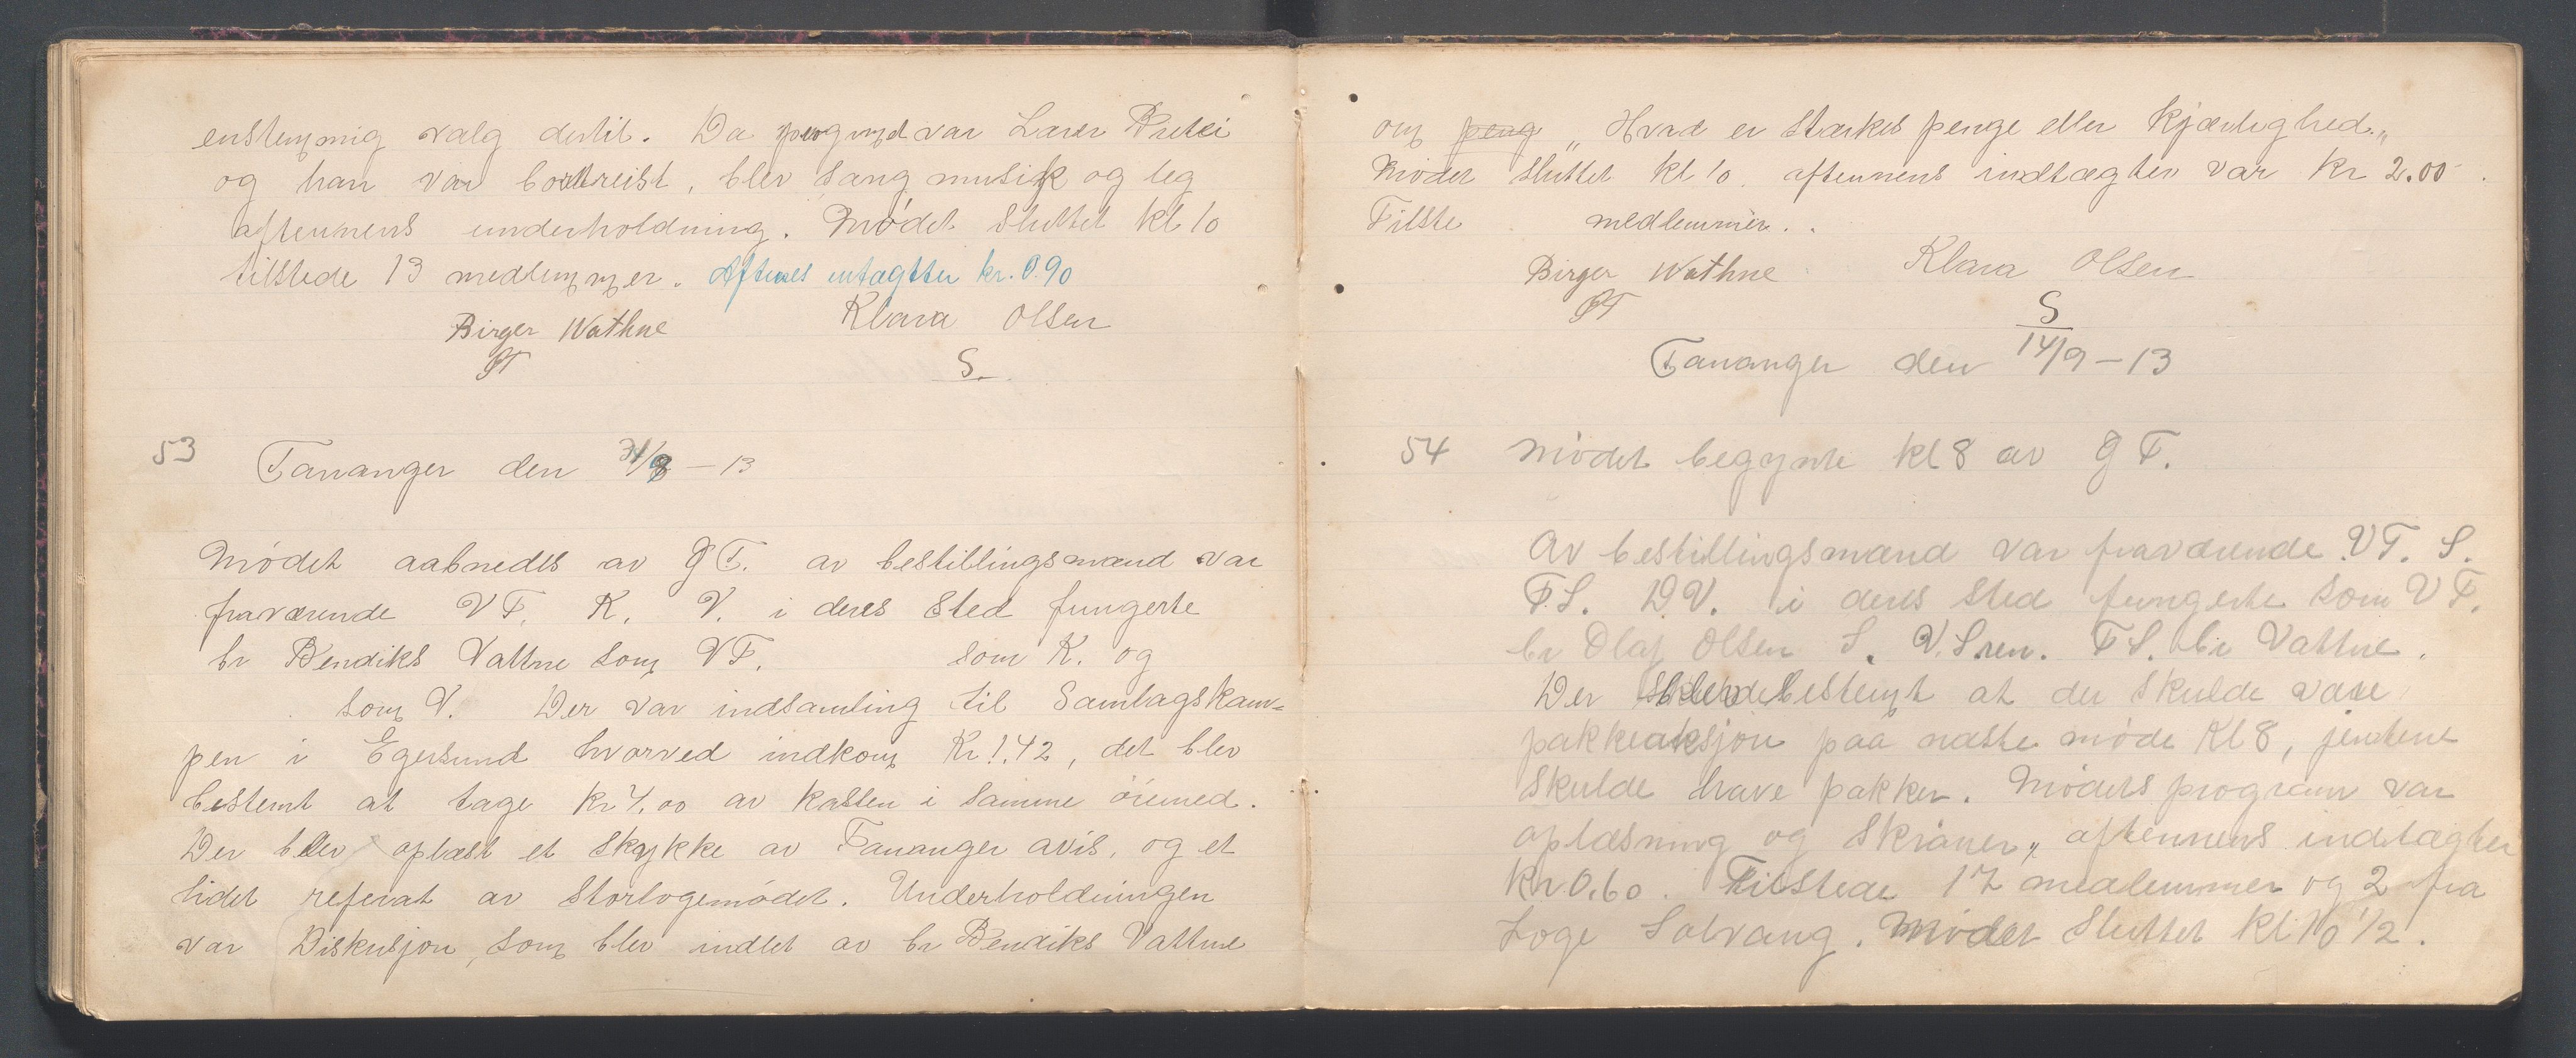 enstemmig valg dertil. Da var Lærer
og han var bortreist, blev sang musik og leg
aftennens underholdning. Mødet sluttet kl 10
tilstede 13 medlemmer. Aftenes intægtter kr. 0.90
Birger Wathne Klara Olsen
GT S.
53 Tananger den 31/8 - 13
Mødet aabnedes av GT. av bestillingsmænd var
fraværende VT. K. V. i deres sted fungerte
br Bendiks Vattne som VT. som K. og
som V. Der var indsamling til Samlagskam=
pen i Egersund hvorved indkom Kr 1.42, det blev
bestemt at tage Kr 4.00 av kassen i samme öiemed.
Der blev oplæst et stykke av Tananger avis, og et
lidet referat av Storlogemødet. Underholdningen
var Diskusjon, som blev indlet av br Bendiks Vattne
om peng „Hvad er stærkes penge eller kjærlighed.„
Mødet sluttet kl 10. aftennens indtægter var kr 2.00.
Tilste medlemmer..
Birger Wathne Klara Olsen
GT S
Tananger den 14/9 - 13
54 Mødet begynte kl 8 av GT.
Av bestillingsmænd var fraværende VT. S.
T.S. D.V. i deres sted fungerte som VT.
br Olaf Olsen S. TS. br Vattne.
Der blev bestemt at der skulde være
pakkeauksjon paa næste møde Kl 8, jentene
skulde have pakker. Mødets program var
oplæsning og skrøner„ aftennens indtægter
kr 0.60. Tilstede 17 medlemmer og 2 fra
Loge Solvang. Mødet sluttet kl 10 1/2.